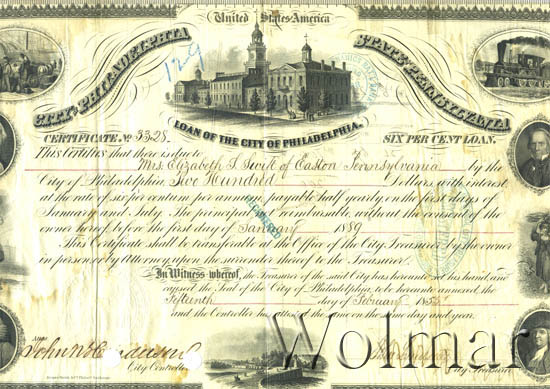 United States America
CITY PHILADELPHIA
STATE PENNSYLVANIA
129
LOAN OF THE CITY OF PHILADELPHIA.
CERTIFICATE No 5328.
SIX PER CENT LOAN.
This Certifies that there is due to
Mrs. Elizabeth S. Swift of Easton Pennsylvania by the
City of Philadelphia Five Hundred Dollars, with interest
at the rate of six per centum per annum, payable half yearly on the first days of
January and July. The principal not reimbursable without the consent of the
owner hereof before the first day of January 1889
This Certificate shall be transferable at the Office of the City Treasurer by the owner
in person or by attorney, upon the surrender thereof to the Treasurer.
In Witness whereof, the Treasurer of the said City has hereunto set his hand, and
caused the Seal of the City of Philadelphia, to be hereunto annexed, the
Fifteenth day of February 185
and the Controller has attested the same on the same day and year.
Attest
City Controller
City Treasurer
Wolmar